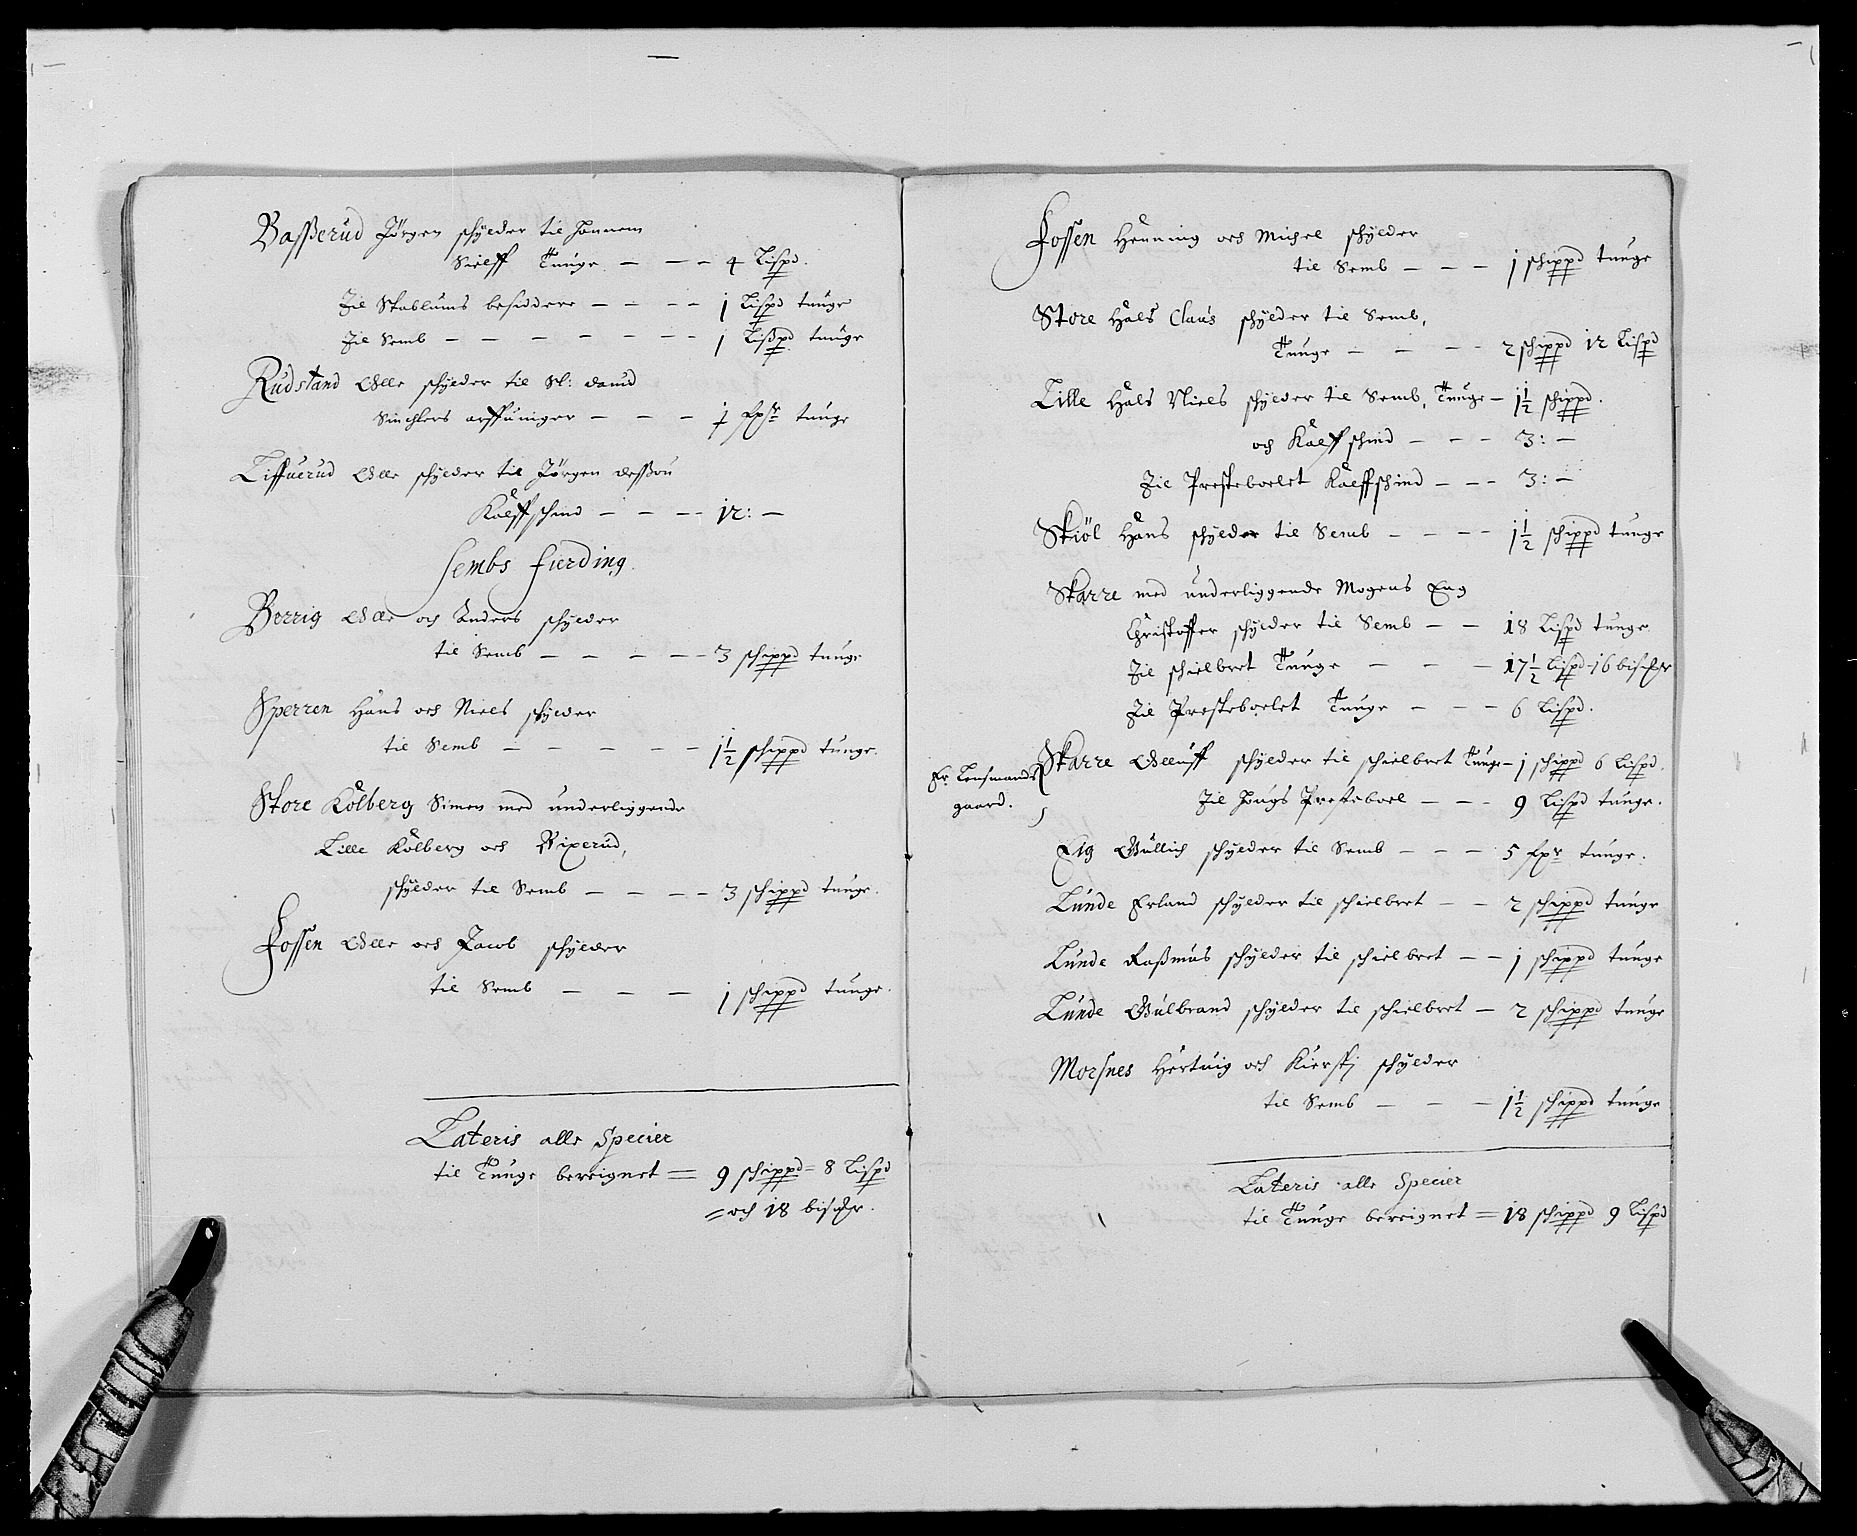 Basserud Jörgen schylder til hannem
Sielff Tunge - - - 4 Lispd.
Til Skablums besiddere - - - 1 Lispd tunge
Til Semb - - - - - - - 1 Lispd tunge
Rudstand Olle schylder til Sl: david
Sinchlers arffuinger - - - 1 fpr tunge
Liffuerud Olle schylder til Jörgen
Kalffschind - - - - 12: -
Sembs fierding.
Berrig Olle och Anders schylder
til Semb - - - - - - 3 schippd tunge
Sperren Hans och Niels schylder
til Semb - - - - - 1½ schippd tunge.
Store Kolberg Simen med underliggende
Lille Kolberg och Vixerud,
schylder til Semb - - - - 3 schippd tunge.
Fossen Olle och Jacob schylder
til Semb - - - 1 schippd tunge.
Lateris alle Specier
til Tunge beregnet = 9 schippd = 8 Lispd
= och 18 bismr.
Fossen Henning och Michel schylder
til Semb - - - 1 schippd tunge
Store Hals Claus schylder til Semb,
Tunge - - - - 2 schippd 12 Lispd
Lille Hals Niels schylder til Semb, Tunge - 1½ schippd.
och Kalff schind - - - 3: -
Til Presteboelet Kalffschind - - - 3: -
Skiöl Hans schylder til Semb - - - - 1½ schippd tunge
Skarre med underliggende Mogens Eng
Christoffer schylder til Semb - - 18 Lispd tunge.
Til schielbret Tunge - - - 17½ Lispd - 16 bismr
Til Presteboelet Tunge - - - 6 Lispd.
Er Lensmands
gaard.
Skarre Olluff schylder til schielbret Tunge - 1 schippd 6 Lispd.
Til Haugs Presteboel - - - 9 Lispd tunge.
Eig Gullich schylder til Semb - - - 5 fpr tunge.
Lunde Erland schylder til schielbret - - 2 schippd tunge
Lunde Rasmus schylder til schielbret - - 1 schippd tunge
Lunde Gulbrand schylder til schielbret - 2 schippd tunge
Morsnes Hertuig och Kiersti schylder
til Semb - - - 1½ schippd tunge
Lateris alle Specier
til Tunge beregnet = 18 schippd 9 Lispd